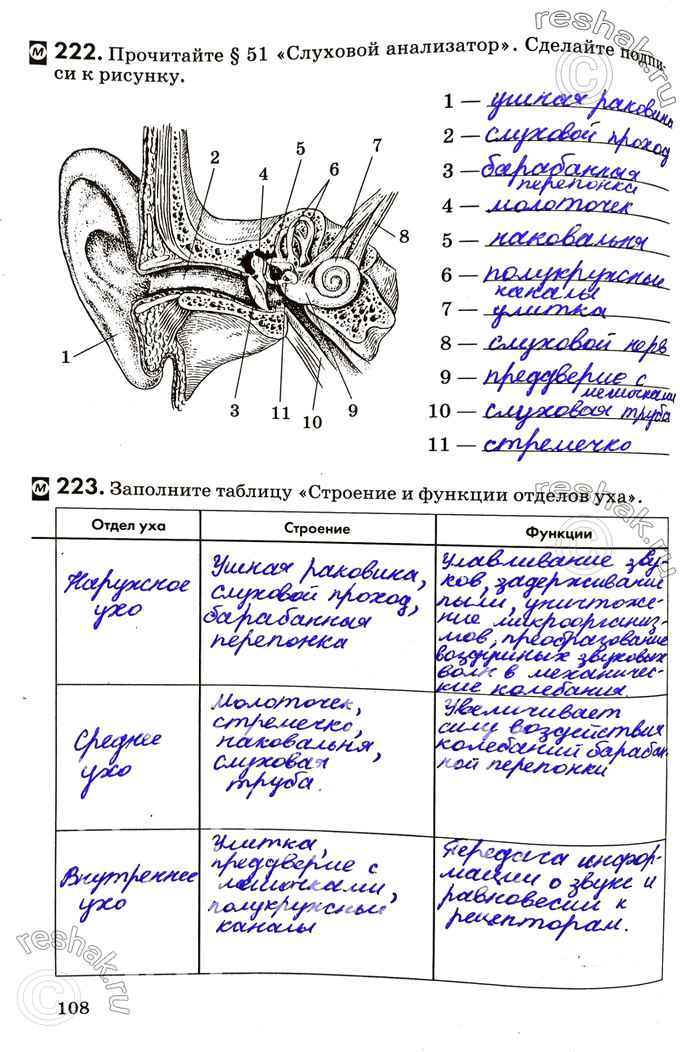 М 222. Прочитайте § 51 «Слуховой анализатор». Сделайте подпи-
си к рисунку.
1 — ушная раковина
2 — слуховой проход
3 — барабанная
перепонка
4 — молоточек
5 — наковальня
6 — полукружные
каналы
7 — улитка
8 — слуховой нерв
9 — преддверие с
мешочками
10 — слуховая труба
11 — стремечко
1
2
3
4
5
6
7
8
9
10
11
М 223. Заполните таблицу «Строение и функции отделов уха».
Отдел уха
Строение
Функции
Наружное
ухо
Ушная раковина,
слуховой проход,
барабанная
перепонка
Улавливание зву-
ков, задерживание
пыли, уничтоже-
ние микроорганиз-
мов, преобразование
воздушных звуковых
волн в механичес-
кие колебания
Среднее
ухо
Молоточек,
стремечко,
наковальня,
слуховая
труба.
Увеличивает
силу воздействия
колебаний барабан-
ной перепонки
Внутреннее
ухо
Улитка,
преддверие с
мешочками,
полукружные
каналы
Передача инфор-
мации о звуке и
равновесии к
рецепторам.
108
reshak.ru
reshak.ru
reshak.ru
reshak.ru